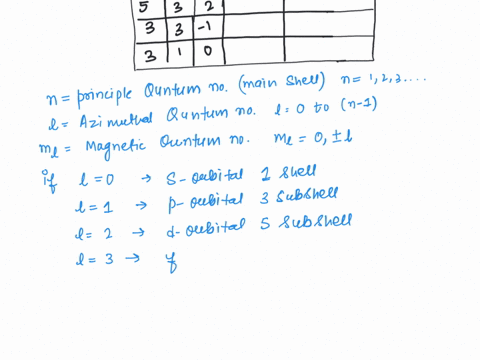 5 3 2
3 3 -1
3 1 0
n = principle Quntum no. (main shell) n = 1, 2, 3 ....
l = Azimuthal Quntum no. l = 0 to (n-1)
ml = Magnetic Quntum no. ml = 0, ±l
if l = 0 → S-oubital 1 Shell
l = 1 → p-oubital 3 Subshell
l = 2 → d-oubital 5 subshell
l = 3 → f